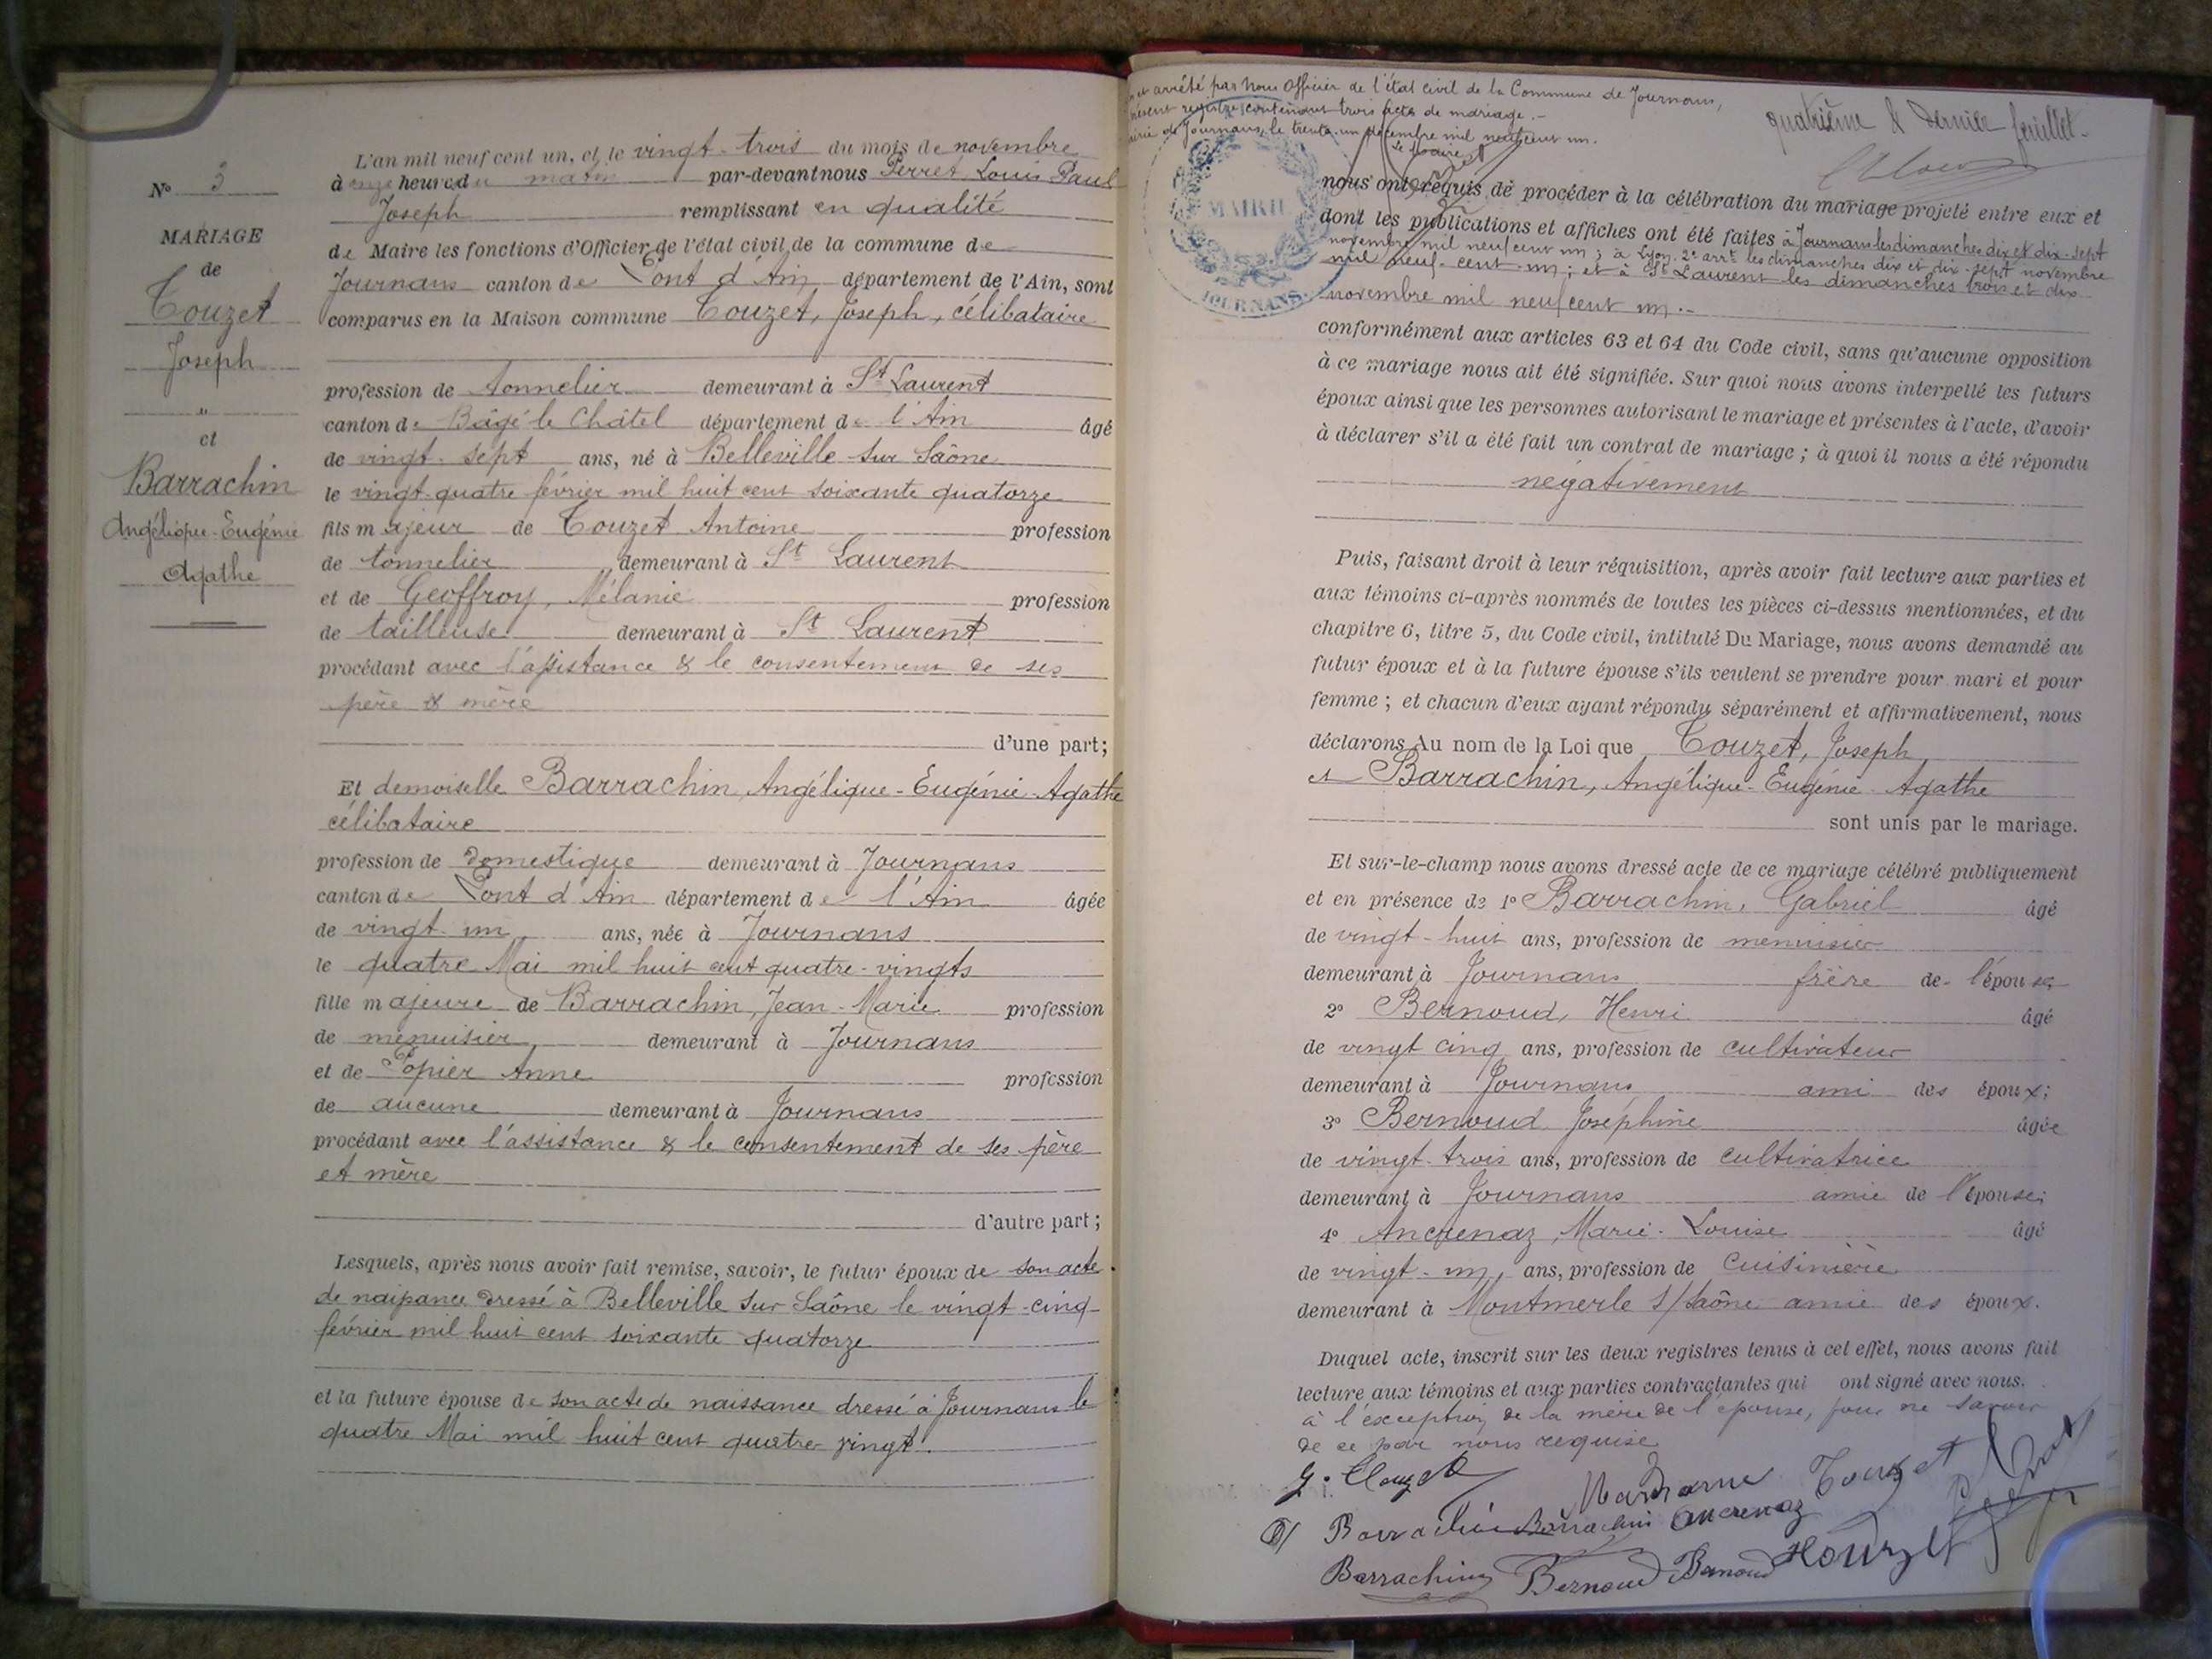 N° 3
MARIAGE
de
Touzet
Joseph
"
et
Barrachin
Angélique-Eugénie
Agathe
L'an mil neuf cent un, et le vingt-trois du mois de novembre
à onze heures du matin par-devant nous Perret, Louis Paul
Joseph remplissant en qualité
de Maire les fonctions d'Officier de l'état civil de la commune de
Journans canton de Pont d'Ain département de l'Ain, sont
comparus en la Maison commune Touzet, Joseph, célibataire
profession de tonnelier demeurant à St Laurent
canton de Bâgé le Châtel département de l'Ain âgé
de vingt-sept ans, né à Belleville sur Saône
le vingt-quatre février mil huit cent soixante quatorze
fils majeur de Touzet Antoine profession
de tonnelier demeurant à St Laurent
et de Geoffroy, Mélanie profession
de tailleuse demeurant à St Laurent
procédant avec l'assistance & le consentement de ses
père & mère
d'une part;
Et demoiselle Barrachin, Angélique-Eugénie-Agathe
célibataire
profession de domestique demeurant à Journans
canton de Pont d'Ain département de l'Ain âgée
de vingt-un ans, née à Journans
le quatre Mai mil huit cent quatre-vingts
fille majeure de Barrachin, Jean-Marie profession
de menuisier demeurant à Journans
et de Popier Anne profession
de aucune demeurant à Journans
procédant avec l'assistance & le consentement de ses père
et mère
d'autre part;
Lesquels, après nous avoir fait remise, savoir, le futur époux de son acte
de naissance dressé à Belleville sur Saône le vingt-cinq
février mil huit cent soixante quatorze
et la future épouse de son acte de naissance dressé à Journans le
quatre Mai mil huit cent quatre vingt.
et arrêté par Nous Officier de l'état civil de la Commune de Journans,
présent registre contenant trois actes de mariage.-
Mairie de Journans, le trente-un décembre mil neuf cent un.
Le Maire,
quatrième & dernier feuillet-
MAIRIE
JOURNANS
nous ont requis de procéder à la célébration du mariage projeté entre eux et
dont les publications et affiches ont été faites à Journans les dimanches dix et dix-sept
novembre mil neuf cent un; à Lyon 2e arrt les dimanches dix et dix-sept novembre
mil neuf-cent-un; et à St Laurent les dimanches trois et dix
novembre mil neuf cent un.-
conformément aux articles 63 et 64 du Code civil, sans qu'aucune opposition
à ce mariage nous ait été signifiée. Sur quoi nous avons interpellé les futurs
époux ainsi que les personnes autorisant le mariage et présentes à l'acte, d'avoir
à déclarer s'il a été fait un contrat de mariage; à quoi il nous a été répondu
négativement
Puis, faisant droit à leur réquisition, après avoir fait lecture aux parties et
aux témoins ci-après nommés de toutes les pièces ci-dessus mentionnées, et du
chapitre 6, titre 5, du Code civil, intitulé Du Mariage, nous avons demandé au
futur époux et à la future épouse s'ils veulent se prendre pour mari et pour
femme; et chacun d'eux ayant répondu séparément et affirmativement, nous
déclarons Au nom de la Loi que Touzet, Joseph
et Barrachin, Angélique-Eugénie-Agathe
sont unis par le mariage.
Et sur-le-champ nous avons dressé acte de ce mariage célébré publiquement
et en présence de 1° Barrachin, Gabriel âgé
de vingt-huit ans, profession de menuisier
demeurant à Journans frère de l'épouse
2° Bernoud, Henri âgé
de vingt cinq ans, profession de cultivateur
demeurant à Journans ami des époux;
3° Bernoud Joséphine âgée
de vingt-trois ans, profession de cultivatrice
demeurant à Journans amie de l'épouse;
4° Ancrenaz, Marie-Louise âgé
de vingt-un ans, profession de cuisinière
demeurant à Montmerle s/Saône amie des époux.
Duquel acte, inscrit sur les deux registres tenus à cet effet, nous avons fait
lecture aux témoins et aux parties contractantes qui ont signé avec nous.
à l'exception de la mère de l'épouse, pour ne savoir
de ce par nous requise
J. Touzet Madame Touzet
Barrachin Barrachin Ancrenaz
Barrachin Bernoud Bernoud